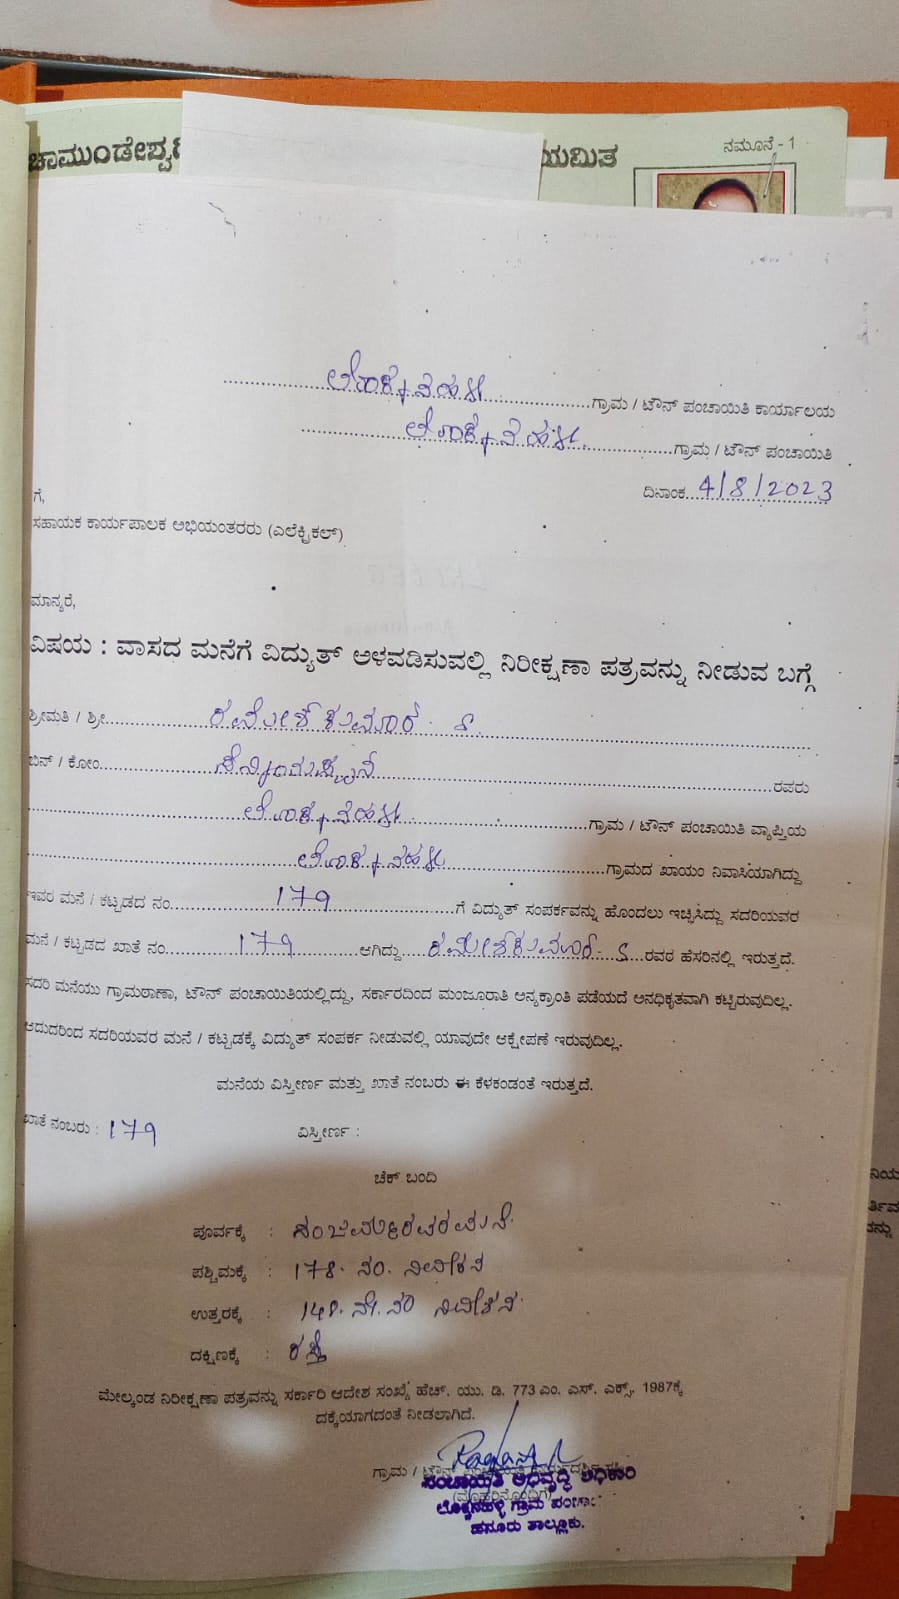 ಚಾಮುಂಡೇಶ್ವರ ಯಮಿತ
ನಮೂನೆ - 1
ಲೊಕ್ಕನಹಳ್ಳಿ ಗ್ರಾಮ / ಟೌನ್ ಪಂಚಾಯಿತಿ ಕಾರ್ಯಾಲಯ
ಲೊಕ್ಕನಹಳ್ಳಿ ಗ್ರಾಮ / ಟೌನ್ ಪಂಚಾಯಿತಿ
ದಿನಾಂಕ 4/8/2023
ಗೆ,
ಸಹಾಯಕ ಕಾರ್ಯಪಾಲಕ ಅಭಿಯಂತರರು (ಎಲೆಕ್ಟ್ರಿಕಲ್)
ಮಾನ್ಯರೆ,
ವಿಷಯ : ವಾಸದ ಮನೆಗೆ ವಿದ್ಯುತ್ ಅಳವಡಿಸುವಲ್ಲಿ ನಿರೀಕ್ಷಣಾ ಪತ್ರವನ್ನು ನೀಡುವ ಬಗ್ಗೆ
ಶ್ರೀಮತಿ / ಶ್ರೀ ರಮೇಶ್ ಕುಮಾರ್ . S.
ಬಿನ್ / ಕೋಂ ರಪರು
ಲೊಕ್ಕನಹಳ್ಳಿ ಗ್ರಾಮ / ಟೌನ್ ಪಂಚಾಯಿತಿ ವ್ಯಾಪ್ತಿಯ
ಲೊಕ್ಕನಹಳ್ಳಿ ಗ್ರಾಮದ ಖಾಯಂ ನಿವಾಸಿಯಾಗಿದ್ದು
ಇವರ ಮನೆ / ಕಟ್ಟಡದ ನಂ. 179 ಗೆ ವಿದ್ಯುತ್ ಸಂಪರ್ಕವನ್ನು ಹೊಂದಲು ಇಚ್ಛಿಸಿದ್ದು ಸದರಿಯವರ
ಮನೆ / ಕಟ್ಟಡದ ಖಾತೆ ನಂ. 179 ಆಗಿದ್ದು ರಮೇಶ್ ಕುಮಾರ್ . S ರವರ ಹೆಸರಿನಲ್ಲಿ ಇರುತ್ತದೆ.
ಸದರಿ ಮನೆಯು ಗ್ರಾಮಠಾಣಾ, ಟೌನ್ ಪಂಚಾಯಿತಿಯಲ್ಲಿದ್ದು, ಸರ್ಕಾರದಿಂದ ಮಂಜೂರಾತಿ ಅನ್ಯಕ್ರಾಂತಿ ಪಡೆಯದೆ ಅನಧಿಕೃತವಾಗಿ ಕಟ್ಟಿರುವುದಿಲ್ಲ.
ಆದುದರಿಂದ ಸದರಿಯವರ ಮನೆ / ಕಟ್ಟಡಕ್ಕೆ ವಿದ್ಯುತ್ ಸಂಪರ್ಕ ನೀಡುವಲ್ಲಿ ಯಾವುದೇ ಆಕ್ಷೇಪಣೆ ಇರುವುದಿಲ್ಲ.
ಮನೆಯ ವಿಸ್ತೀರ್ಣ ಮತ್ತು ಖಾತೆ ನಂಬರು ಈ ಕೆಳಕಂಡಂತೆ ಇರುತ್ತದೆ.
ಖಾತೆ ನಂಬರು : 179 ವಿಸ್ತೀರ್ಣ :
ಚೆಕ್ ಬಂದಿ
ಪೂರ್ವಕ್ಕೆ : ಮನೆ.
ಪಶ್ಚಿಮಕ್ಕೆ : 178. ನಂ. ನಿವೇಶನ
ಉತ್ತರಕ್ಕೆ : 148. ನೇ. ನಂ ನಿವೇಶನ.
ದಕ್ಷಿಣಕ್ಕೆ : ರಸ್ತೆ
ಮೇಲ್ಕಂಡ ನಿರೀಕ್ಷಣಾ ಪತ್ರವನ್ನು ಸರ್ಕಾರಿ ಆದೇಶ ಸಂಖ್ಯೆ ಹೆಚ್. ಯು. ಡಿ. 773 ಎಂ. ಎಸ್. ಎಕ್ಸ್. 1987ಕ್ಕೆ
ದಕ್ಕೆಯಾಗದಂತೆ ನೀಡಲಾಗಿದೆ.
ಗ್ರಾಮ / ಟೌನ್
ಪಂಚಾಯಿತಿ ಅಭಿವೃದ್ಧಿ ಅಧಿಕಾರಿ
(ಮೊಹರಿನೊಂದಿಗೆ)
ಲೊಕ್ಕನಹಳ್ಳಿ ಗ್ರಾಮ ಪಂಚಾ
ಹನೂರು ತಾಲ್ಲೂಕು.